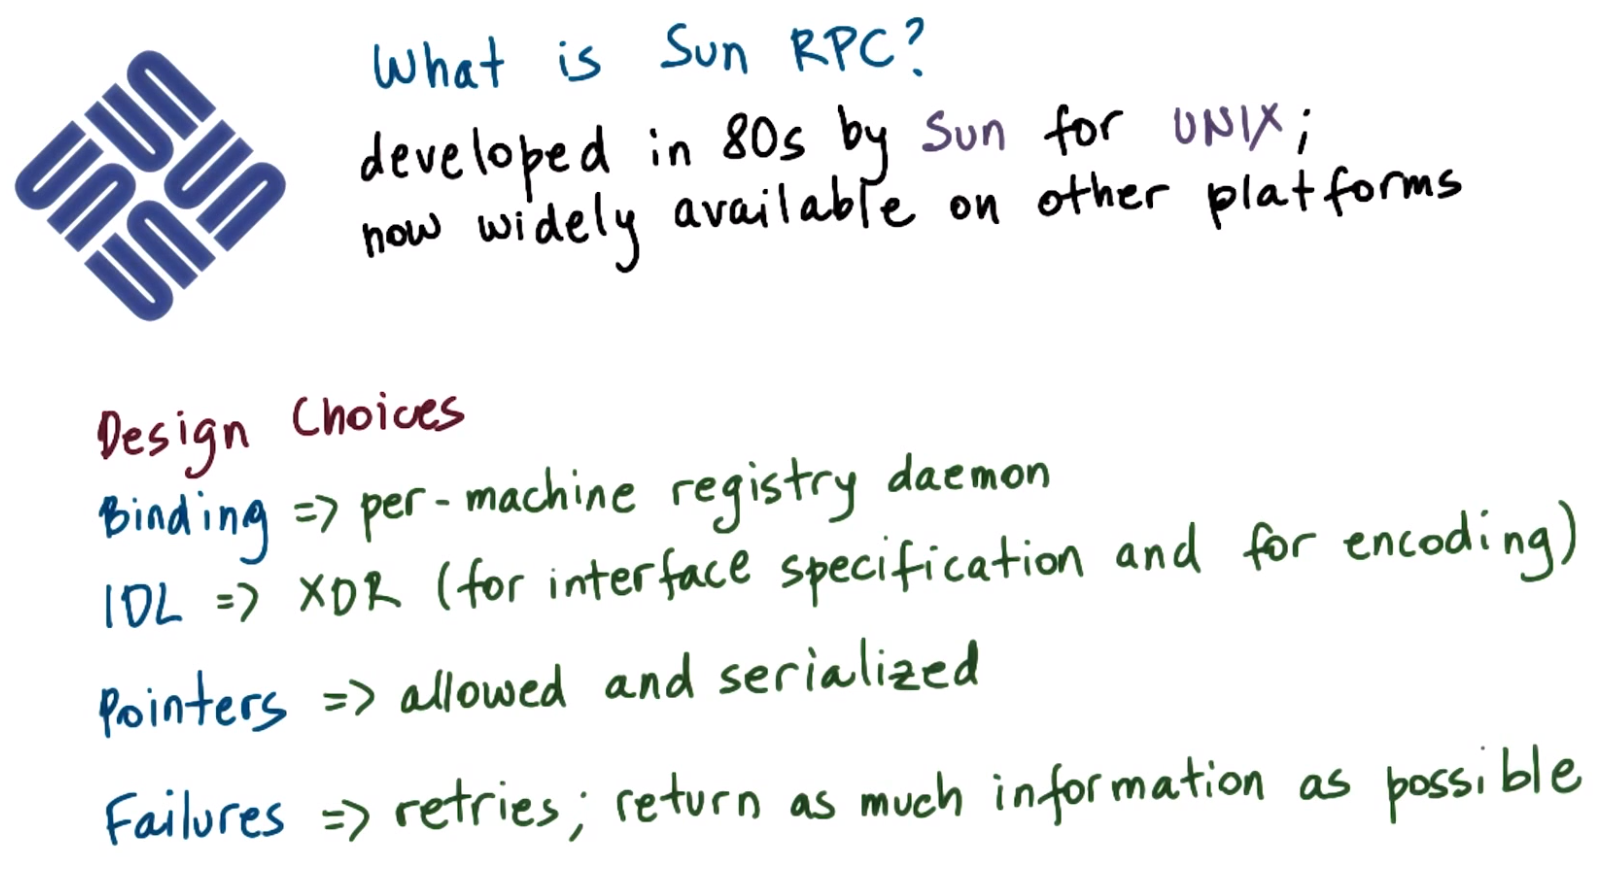 What is Sun RPC?
developed in 80s by Sun for UNIX;
now widely available on other platforms
Design Choices
Binding => per-machine registry daemon
IDL => XDR (for interface specification and for encoding)
Pointers => allowed and serialized
Failures => retries; return as much information as possible